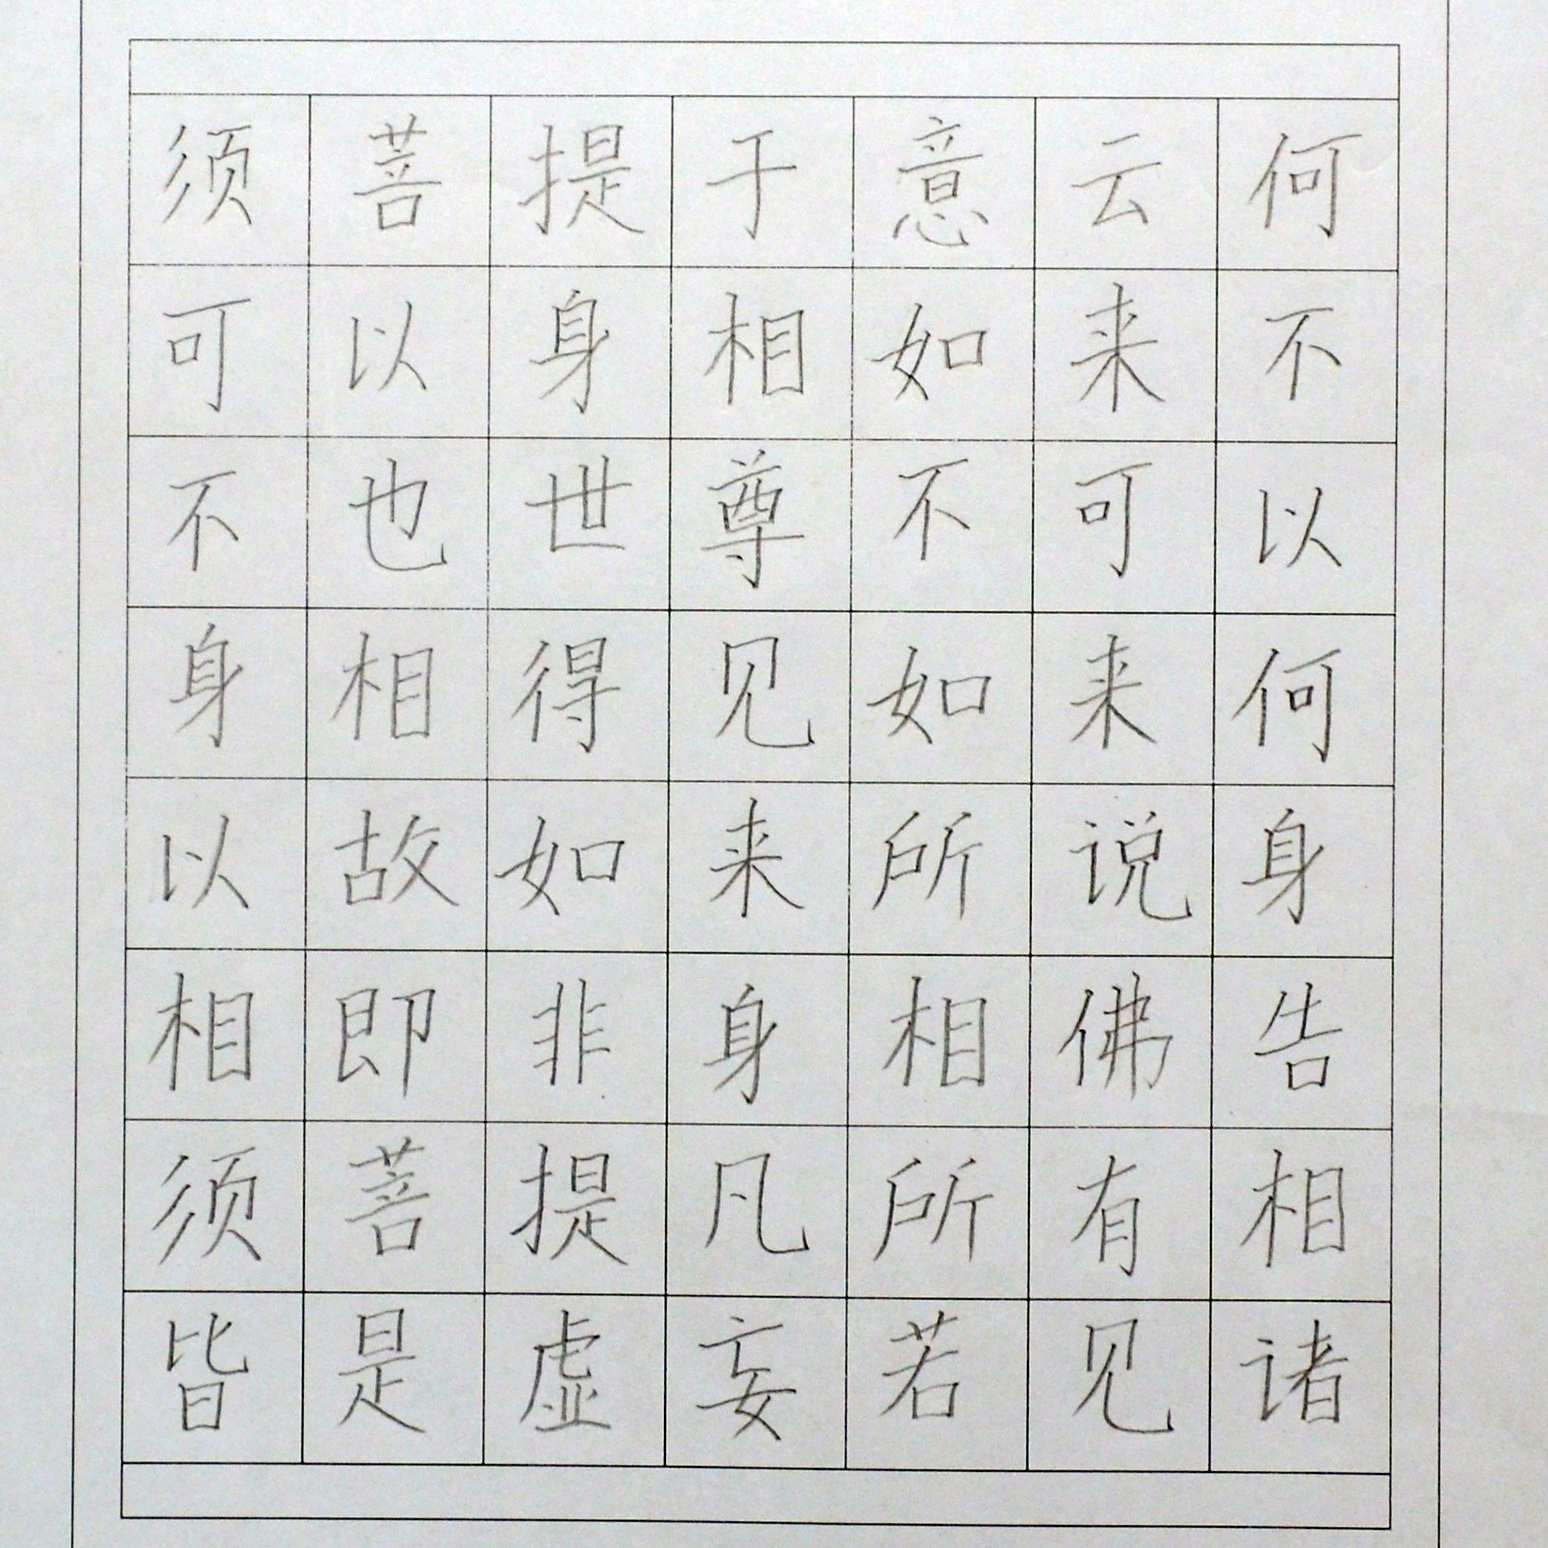 须菩提于意云何
可以身相如来不
不也世尊不可以
身相得见如来何
以故如来所说身
相即非身相佛告
须菩提凡所有相
皆是虚妄若见诸